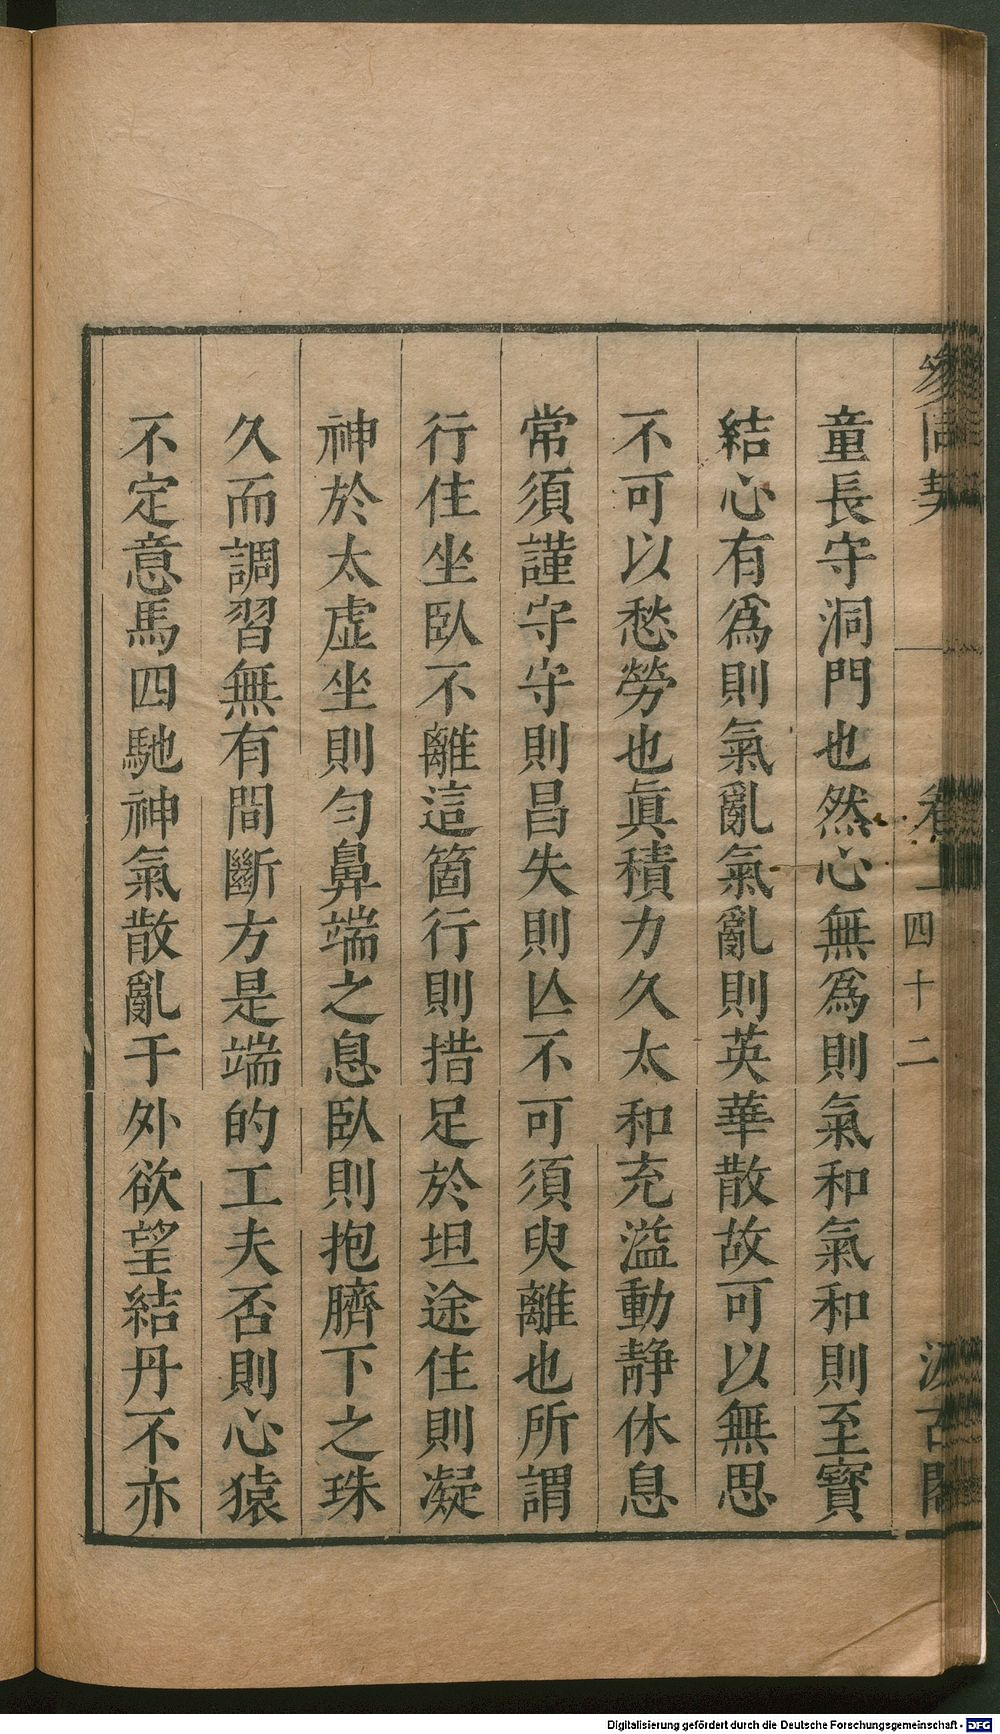 參同契
卷上
四十二
汲古閣
童長守洞門也然心無爲則氣和氣和則至寳
結心有爲則氣亂氣亂則英華散故可以無思
不可以愁勞也眞積力久太和充溢動静休息
常須謹守守則昌失則亾不可須臾離也所謂
行住坐臥不離這箇行則措足於坦途住則凝
神於太虛坐則勻鼻端之息臥則抱臍下之珠
久而調習無有間斷方是端的工夫否則心猿
不定意馬四馳神氣散亂于外欲望結丹不亦
Digitalisierung gefördert durch die Deutsche Forschungsgemeinschaft - DFG